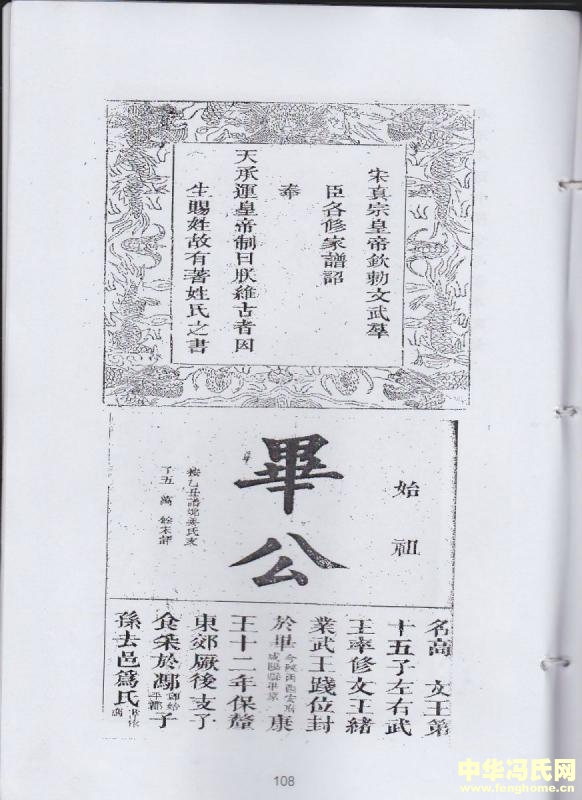 宋真宗皇帝欽勅文武羣
臣各修家譜詔
奉
天承運皇帝制曰朕維古者因
生賜姓故有著姓氏之書
始祖
畢公
名高 文王第
十五子左右武
王率修文王緒
業武王踐位封
於畢 康
王十二年保釐
東郊厥後支子
食采於馮 子
孫去邑爲氏
108
中华冯氏网
www.fenghome.cn